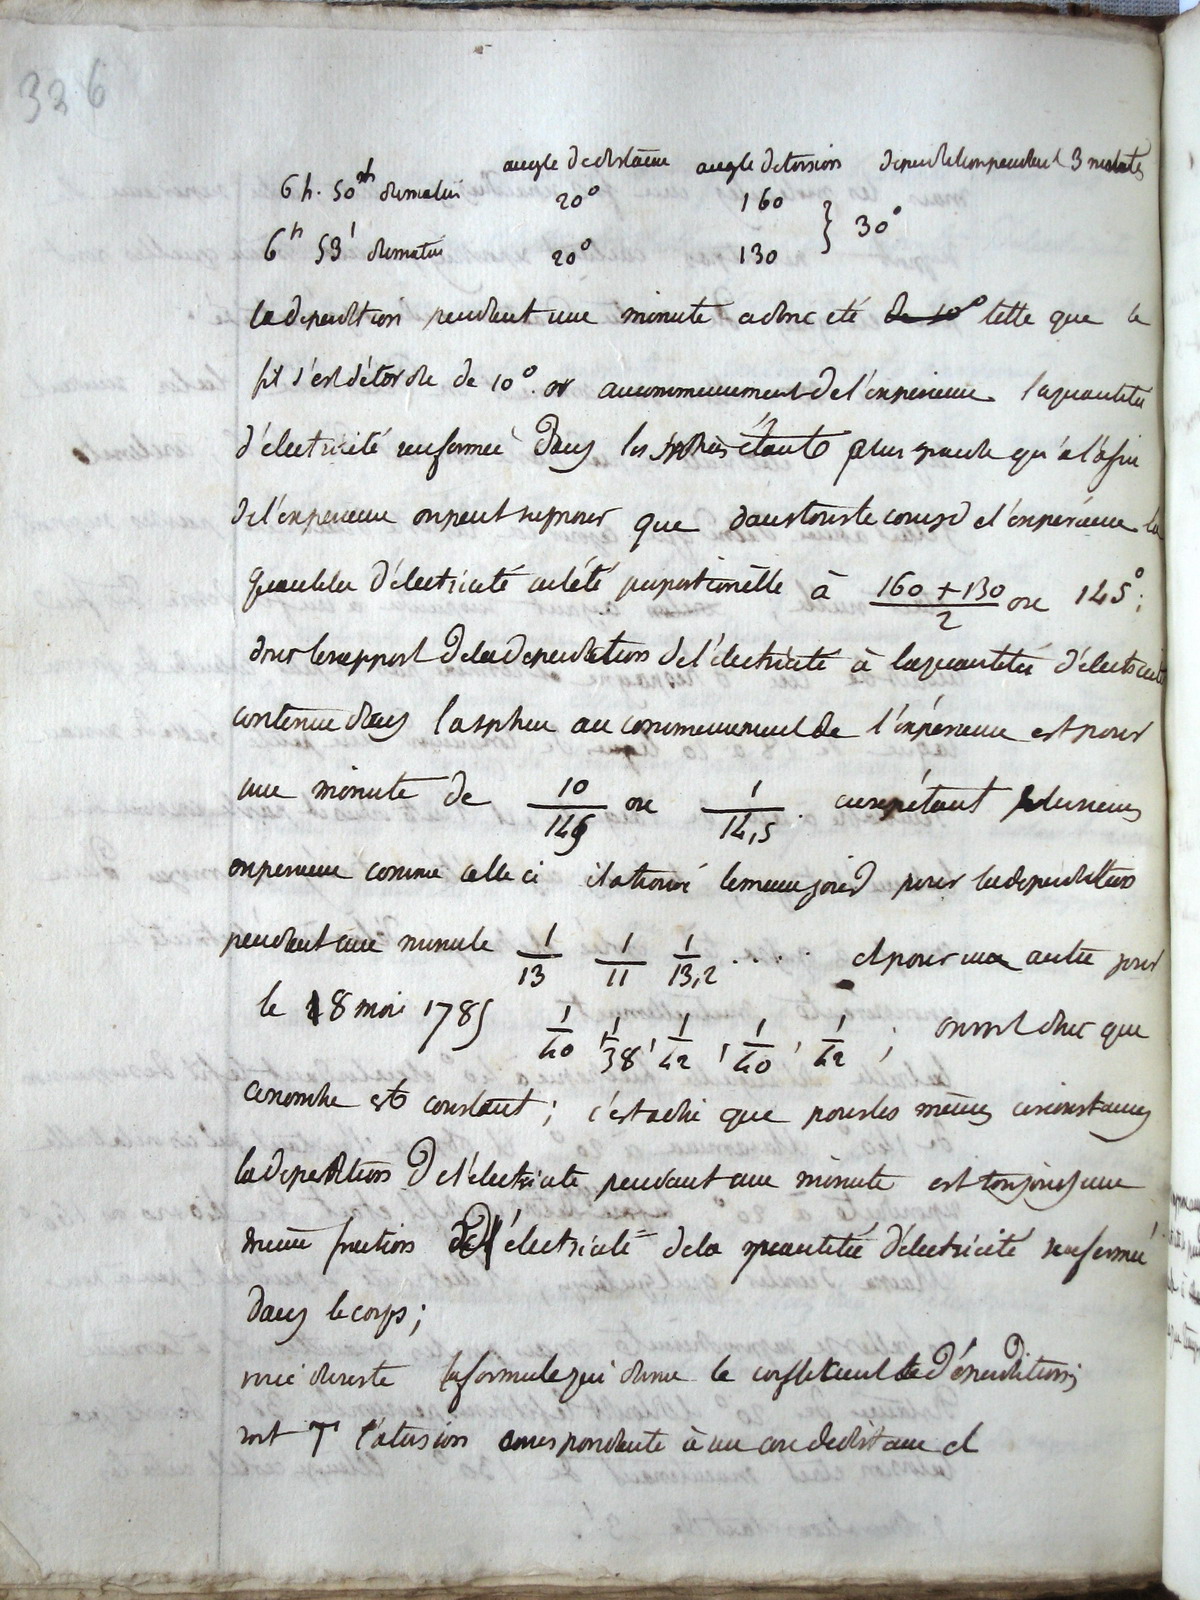 326
angle de distance angle de torsion deperdition pendant 3 minutes
6 h. 50 du matin 20° 160
} 30°
6h 53' du matin 20° 130
la deperdition pendant une minute a donc eté de 10° telle que le
fil s'est détordu de 10°. or au commencement de l'experience la quantité
d'électricité renfermée dans les sphères étant plus grande qu'à la fin
de l'experience on peut supposer que dans tout le cours de l'expérience la
quantité d'électricité a été proportionelle à 160 + 130 / 2 ou 145°;
donc le rapport de la deperdition de l'électricité à la quantité d'électricité
contenue dans la sphere au commencement de l'expérience est pour
une minute de 10/145 ou 1/14,5. en répétant plusieurs
experience comme celle ci il a trouvé le meme jour pour la deperdition
pendant une minute 1/13 1/11 1/13,2 .... et pour un autre jour
le 28 mai 1785 1/40, 1/38, 1/42, 1/40, 1/42; on voit donc que
ce nombre est constant; c'est a dire que pour les mêmes circonstances
la deperdition de l'électricite pendant une minute est toujours une
meme fraction de l'électricité de la quantité d'électricité renfermée
dans le corps;
voici du reste la formule qui donne le coefficient de déperdition;
soit T la torsion correspondante à un arc de distance d